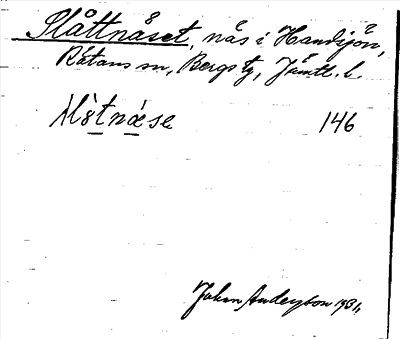 Slåttnäset, näs i Handsjön,
Rätans sn, Bergs tg, Jämtl. l.
146
Johan Anderson 1931,